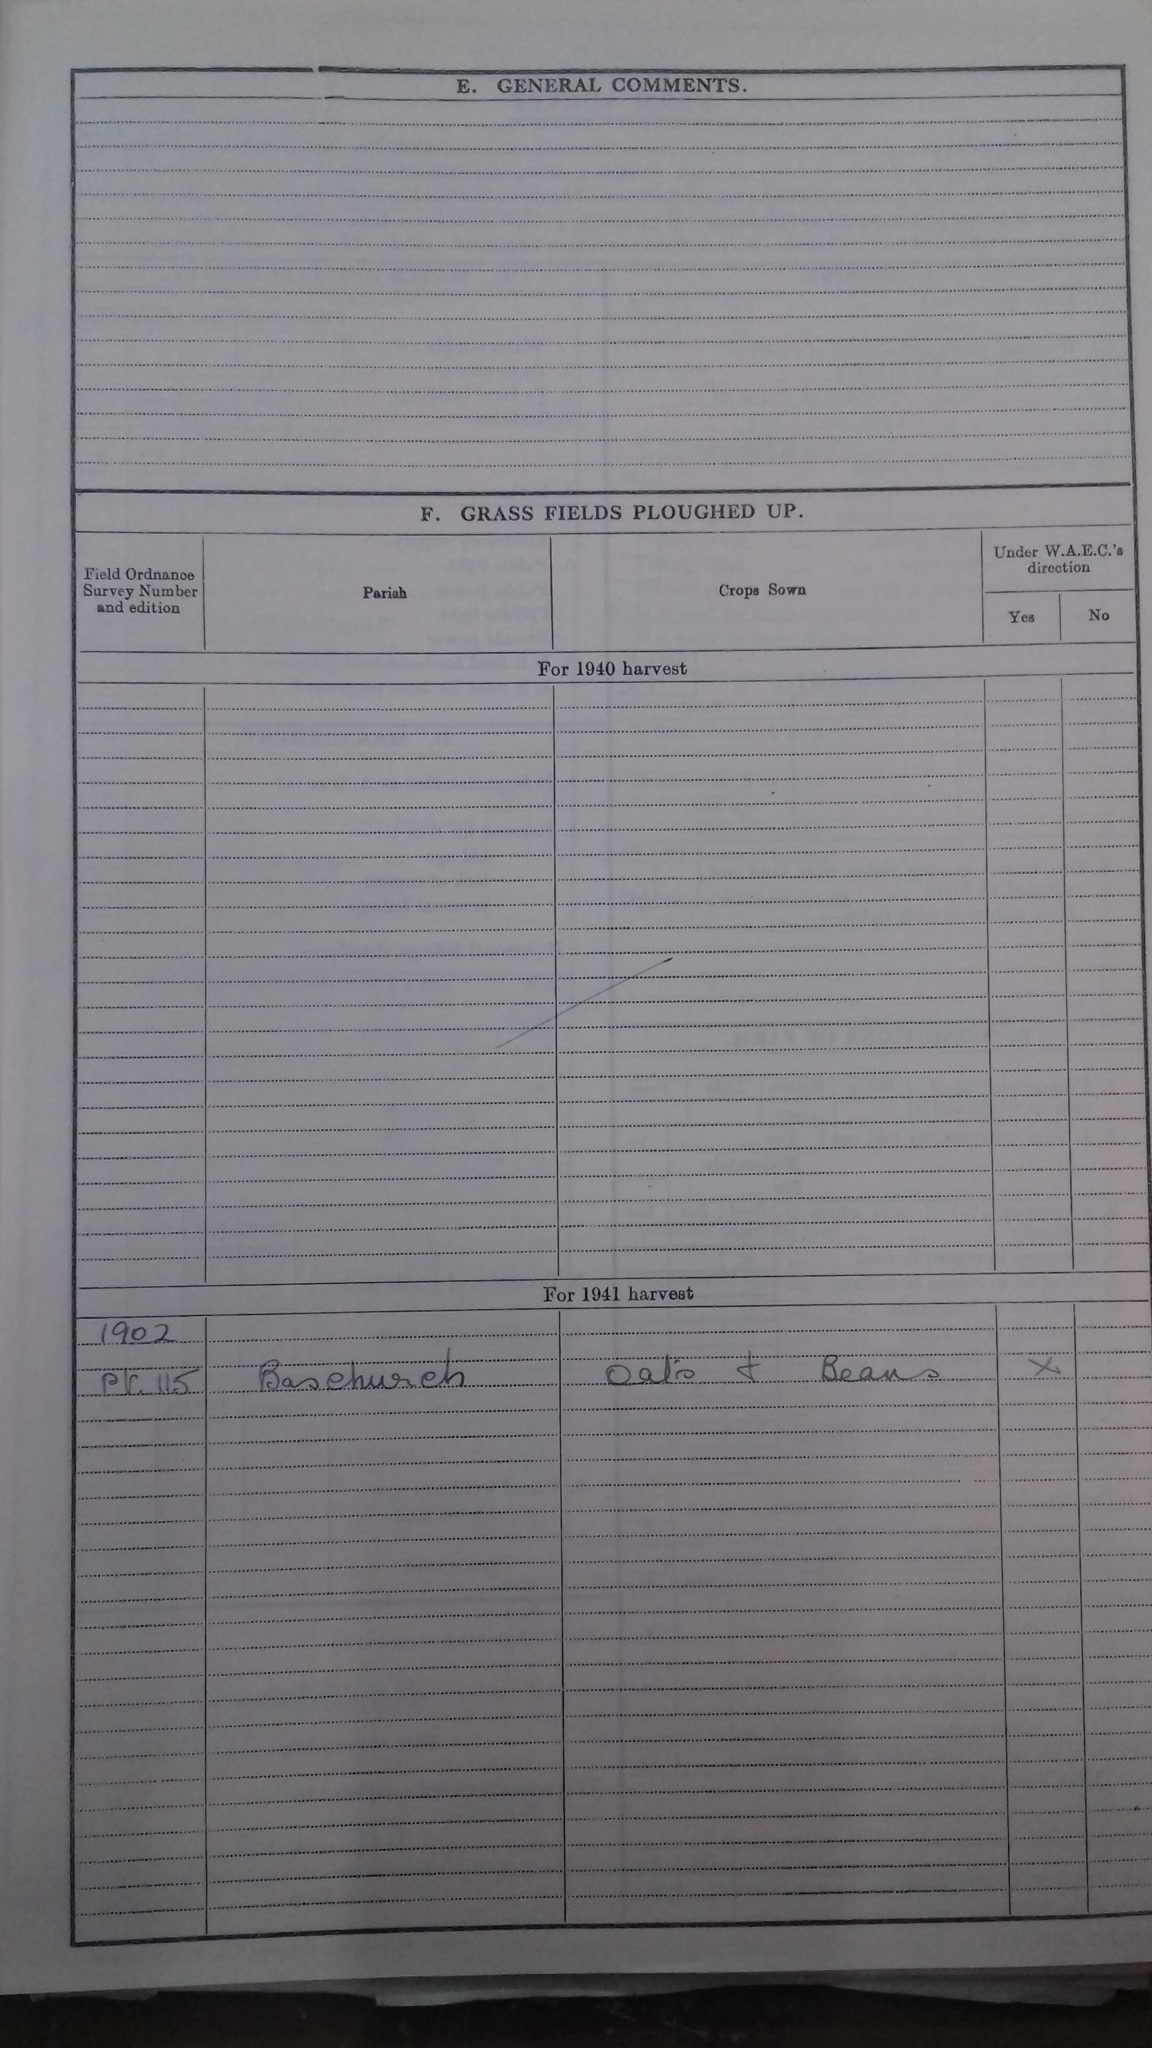 E. GENERAL COMMENTS.
F. GRASS FIELDS PLOUGHED UP.
Field Ordnance
Survey Number
and edition
Parish
Crops Sown
Under W.A.E.C.'s
direction
Yes
No
For 1940 harvest
For 1941 harvest
1902
Pt. 115 Baschurch Oats & Beans X